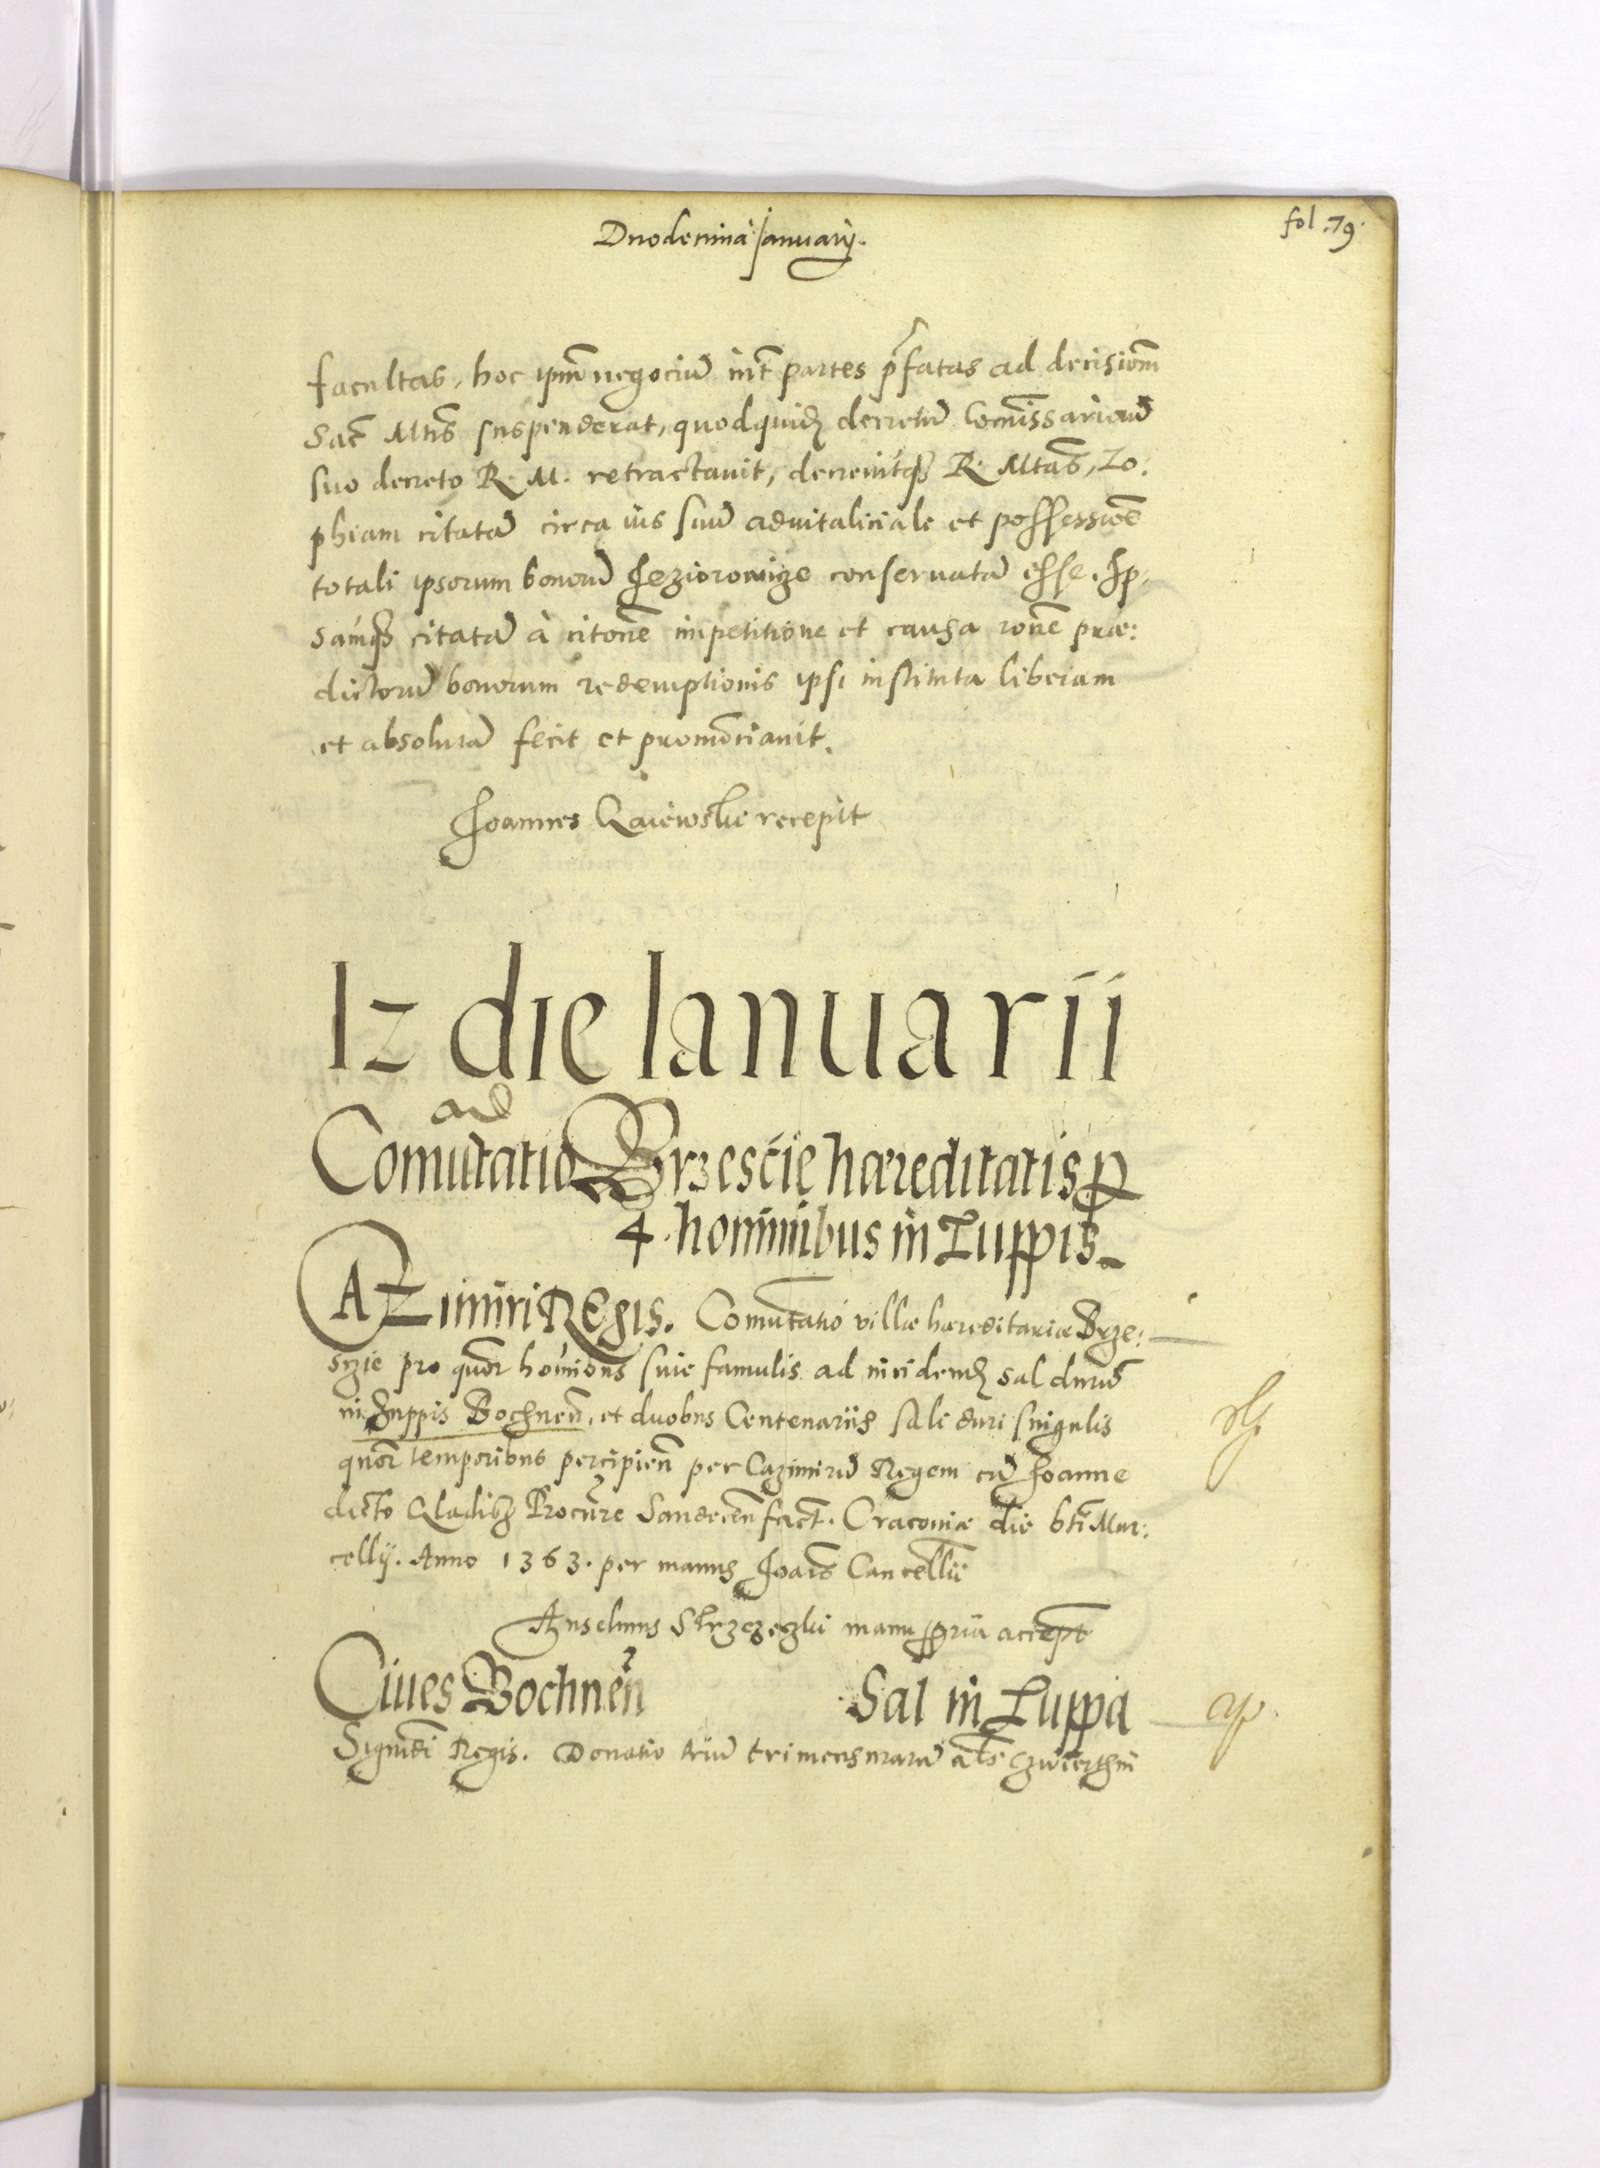 Duodecima Januarij.
fol. 79.
facultas, hoc ipm̄ negociū int̄ partes p̄fatas ad decisionē
Sac̄ Mtis suspenderat, quodquidē decretū Comīssariorū
suo decreto R. M. retractavit, decrevitq̄ R. Mtas, Zo:
phiam citatā circa ius suū advitaliciale et possessionē
totali ipsorum bonorū Jeziorowicze conservatā esse. Ip:
samq̄ citatā à citōne impetitione et causa rōne præ:
dictorū bonorum redemptionis ipsi instituta liberam
et absolutā fecit et pronōciavit.
Joannes Raiewski recepit
12 die Ianuarii
ad
Comutatio Brzescie hæreditatis p̄
4. hominibus in Zuppis
CAZimiri REgis. Comutatio villæ hæreditariæ Brze:
szie pro quor hōibns sive famulis ad incidendū sal durū
in Zuppis Bochnen̄, et duobus Centenariis sali duri singulis
quor̄ temporibus percipien̄ per Cazimirū Regem cū Joanne
dicto Gladisz Procure Sandecen̄ fact. Cracoviæ die bti Mar:
cellij. Anno 1363. per manus Joāis Cancellii
Anselmus Strzezeczki manu ppria accept
Cives Bochnen̄ Sal in Zuppa
Sigmdi Regis. Donatio triū trimensurarū als czwierthni